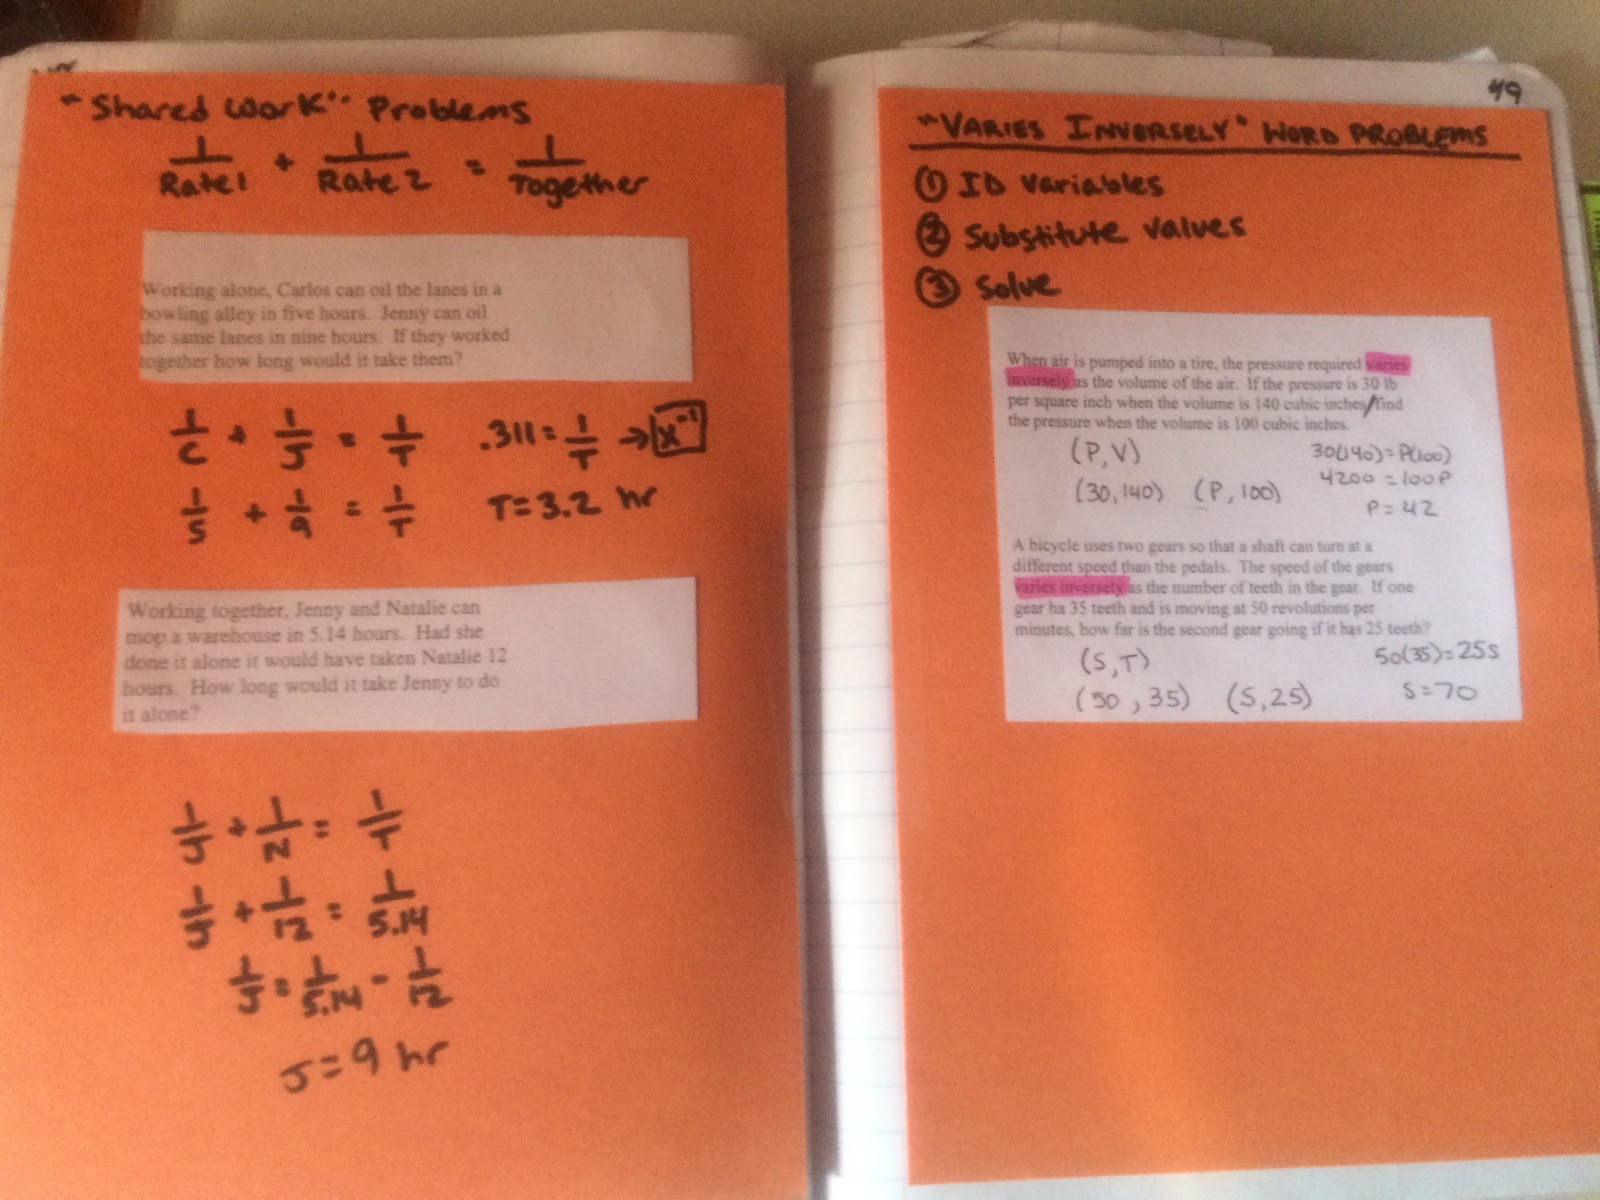 "Shared Work" Problems
1/Rate 1 + 1/Rate 2 = 1/Together
Working alone, Carlos can oil the lanes in a
bowling alley in five hours. Jenny can oil
the same lanes in nine hours. If they worked
together how long would it take them?
1/C + 1/J = 1/T
1/5 + 1/9 = 1/T
.311 = 1/T → x⁻¹
T = 3.2 hr
Working together, Jenny and Natalie can
mop a warehouse in 5.14 hours. Had she
done it alone it would have taken Natalie 12
hours. How long would it take Jenny to do
it alone?
1/J + 1/N = 1/T
1/J + 1/12 = 1/5.14
1/J = 1/5.14 - 1/12
J = 9 hr
49
"VARIES INVERSELY" WORD PROBLEMS
① ID Variables
② Substitute values
③ Solve
When air is pumped into a tire, the pressure required varies
inversely as the volume of the air. If the pressure is 30 lb
per square inch when the volume is 140 cubic inches/find
the pressure when the volume is 100 cubic inches.
(P, V)
(30, 140) (P, 100)
30(140) = P(100)
4200 = 100P
P = 42
A bicycle uses two gears so that a shaft can turn at a
different speed than the pedals. The speed of the gears
varies inversely as the number of teeth in the gear. If one
gear ha 35 teeth and is moving at 50 revolutions per
minutes, how far is the second gear going if it has 25 teeth?
(S, T)
(50, 35) (S, 25)
50(35) = 25s
S = 70